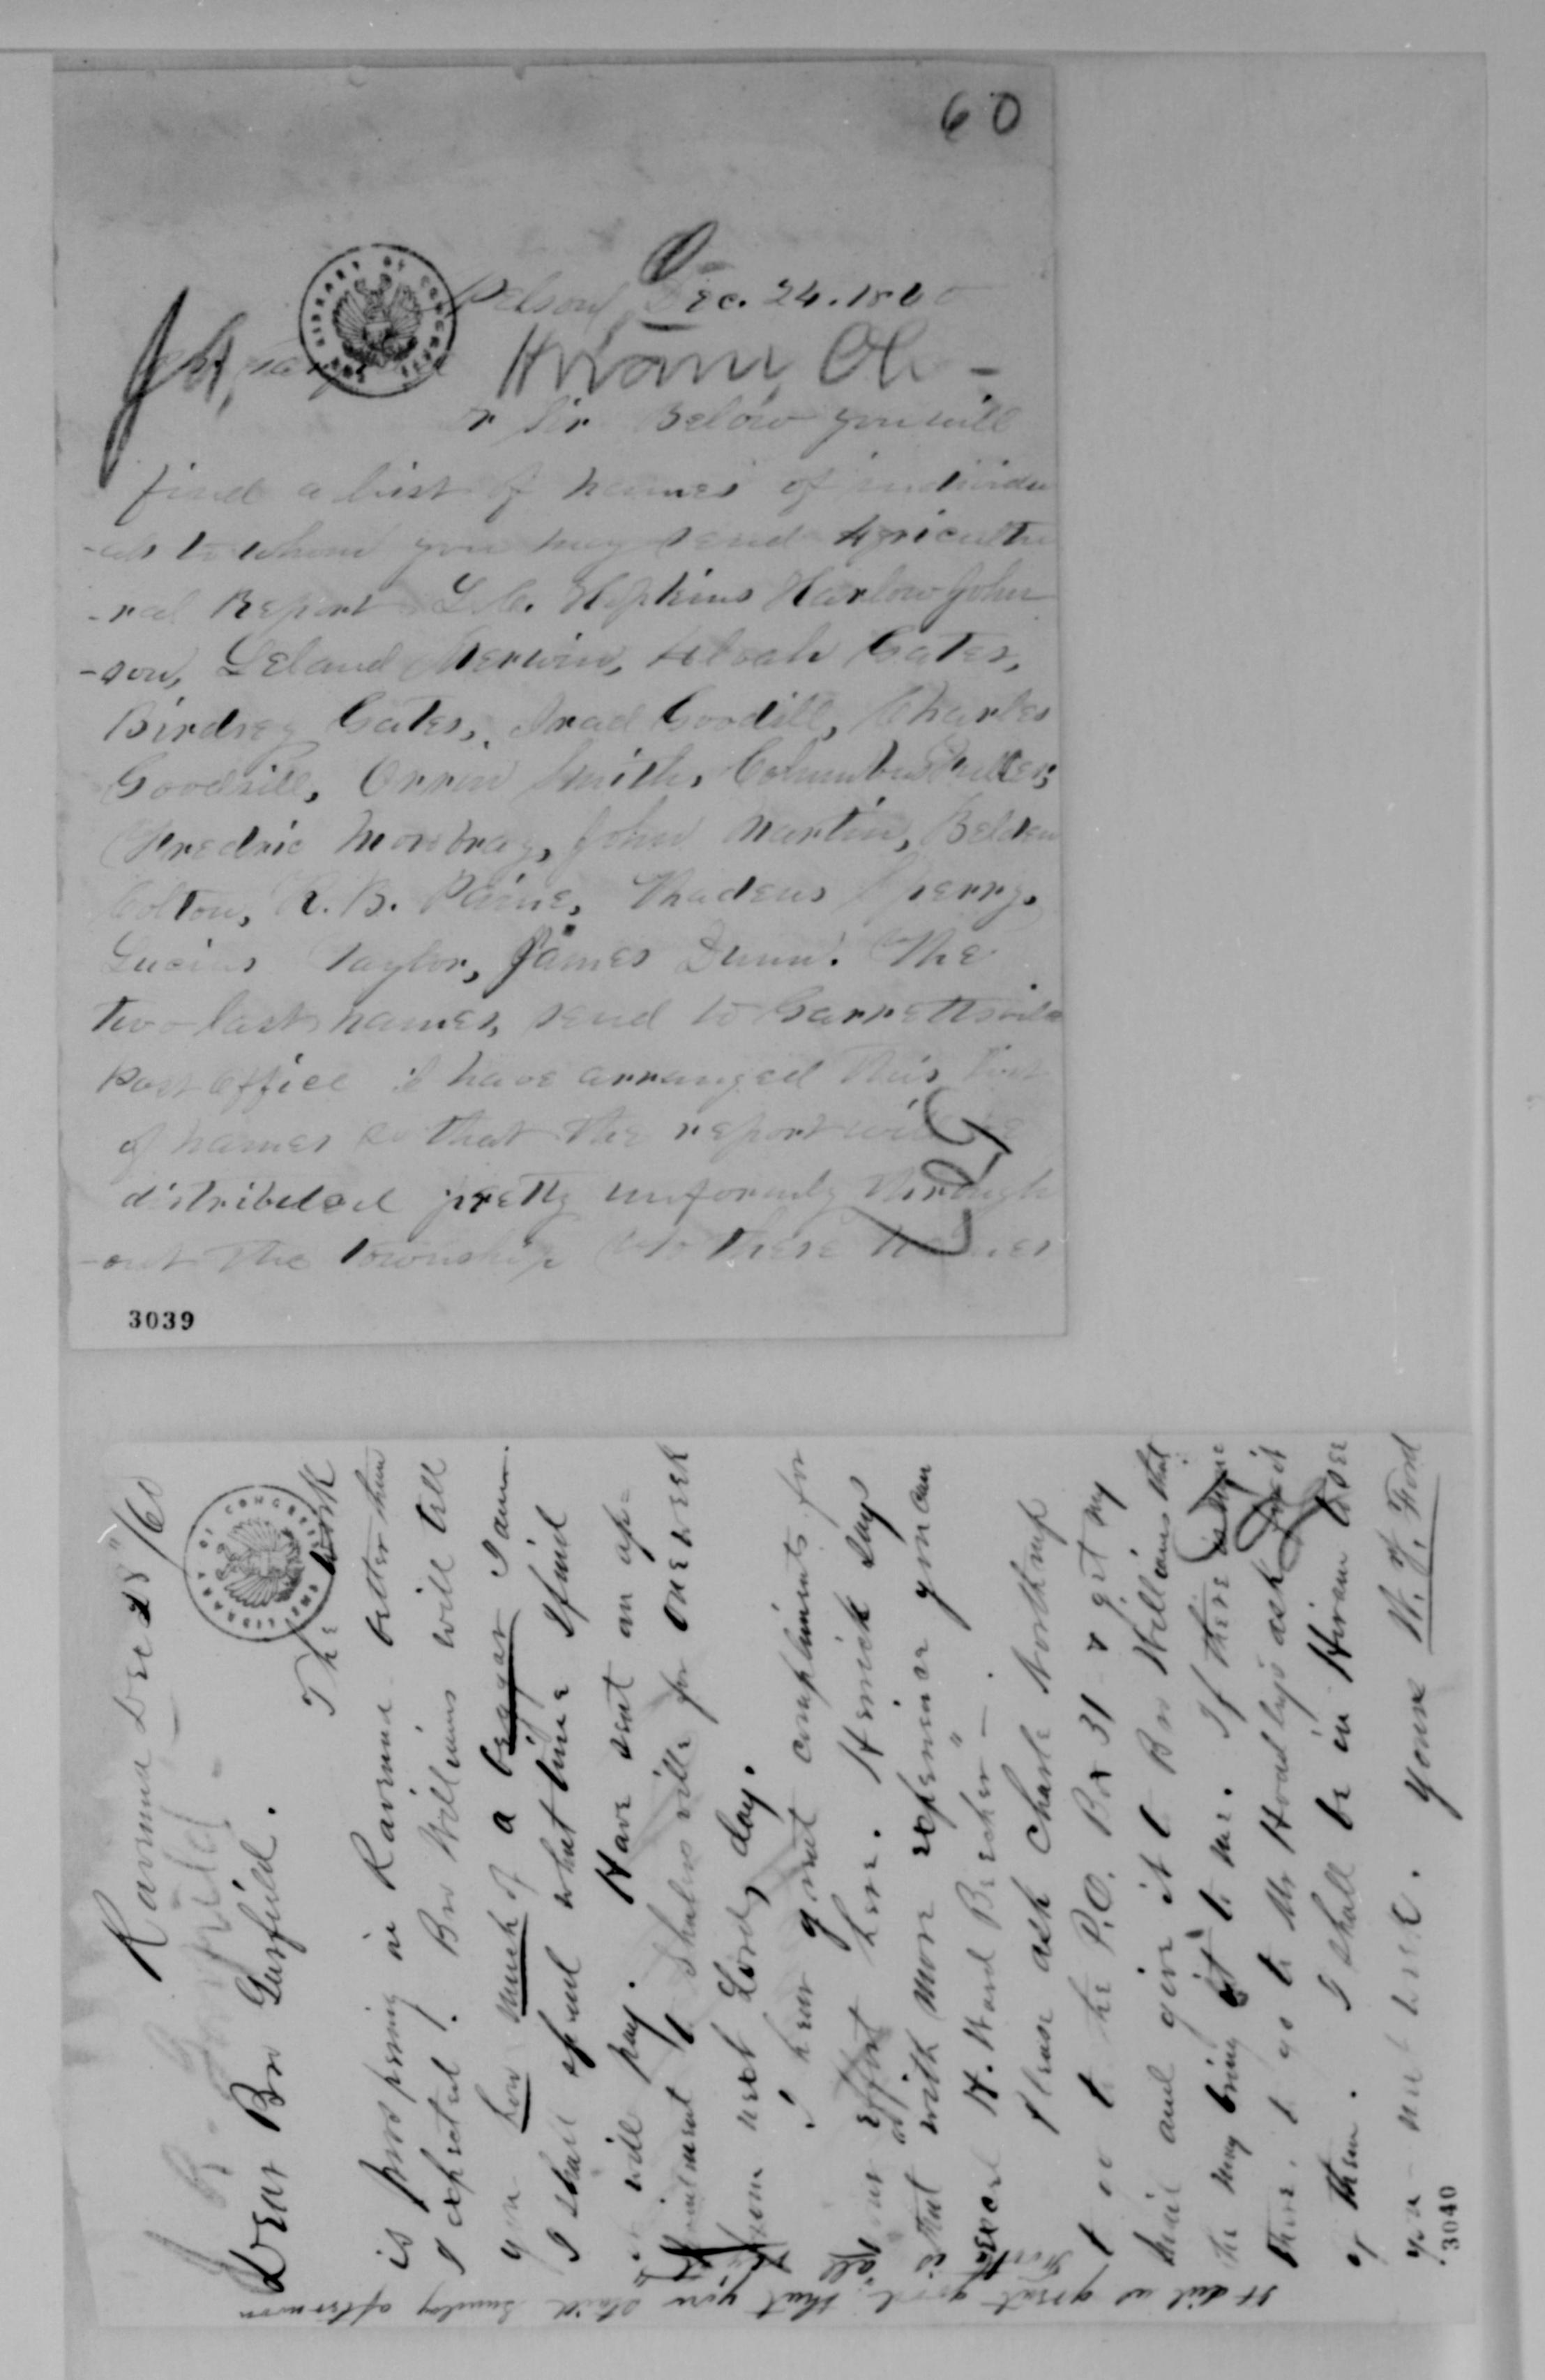 60
Nelson, Dec. 24. 1860
J. A. Garfield Hiram, Oh-
Sir Below you will
find a list of names of individu
-als to whom you may send Agricultu
-ral Report L. C. Hopkins Harlow John
-son, Leland Merwin, Alvah Bates,
Birdsey Bates, Irad Goodill, Charles
Goodsill, Orrin Smith, Columbus Fuller,
Fredric Mowbray, John Martin, Belden
Colton, R. B. Paine, Thadeus Sperry,
Lucius Taylor, James Dunn. The
two last names, send to Garrettsville
Post Office I have arranged this list
of names so that the report will be
distributed pretty uniformly through
-out the township to these names
3039
THE LIBRARY OF CONGRESS
Ravenna Dec 28"/60
J. A. Garfield
Dear Bro Garfield.
The work
is prospering in Ravenna better than
I expected. Bro Williams will tell
you how much of a beggar I am.
I shall spend what time I find
it will pay. Have sent an ap-
pointment to Shalersville for one week
from next Lords day.
I hear great compliments for
all your effort here. Herrick says
"that is with more experience you can
excel H. Ward Beecher"—.
Please ask Charle Northrup
to go to the P.O. Box 31 & get my
mail and give it to Bro Williams that
he may bring it to me. If there is none
there, to go to Mr Hoadleys ask for it
of them. I shall be in Hiram to see
you next week. Yours W. J. Ford
It did us great good that you staid Sunday afternoon
3040